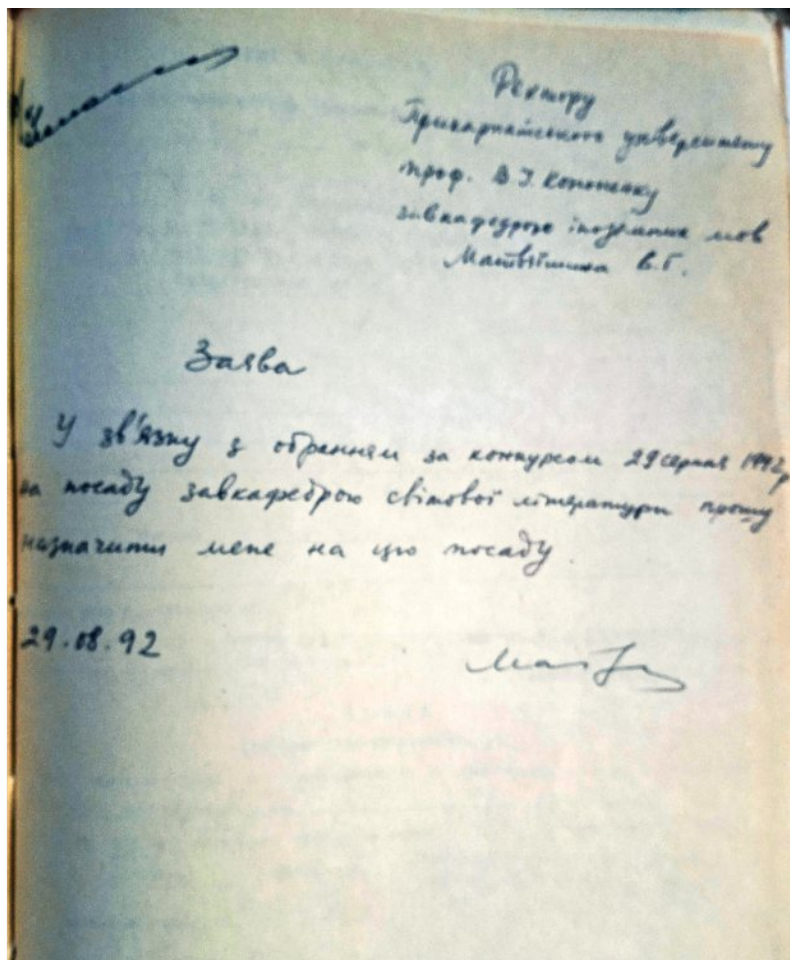 Ректору
Прикарпатського університету
проф. В.І. Кононенку
завкафедрою іноземних мов
Матвіїшина В.Г.
Заява
У зв'язку з обранням за конкурсом 29 серпня 1992р
на посаду завкафедрою світової літератури прошу
назначити мене на цю посаду.
29.08.92